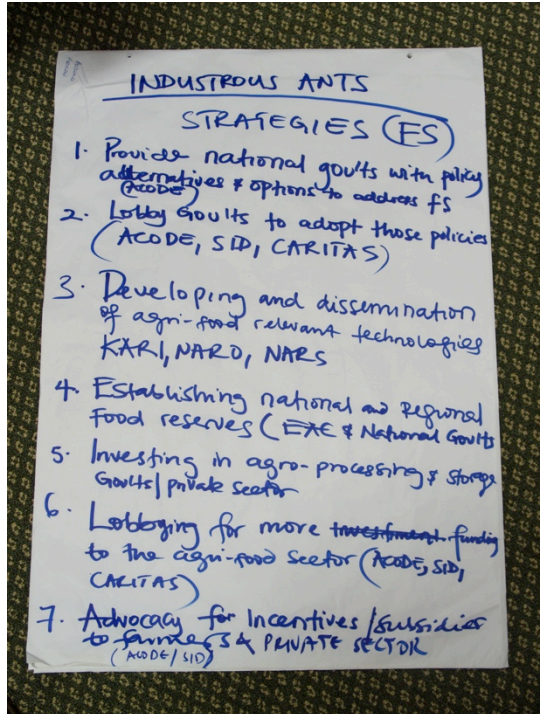 INDUSTROUS ANTS
STRATEGIES (FS)
1. Provide national gov'ts with policy
alternatives & options to address fs
(ACODE)
2. Lobby Gov'ts to adopt those policies
(ACODE, SID, CARITAS)
3. Developing and dissemination
of agri-food relevant technologies
KARI, NARO, NARS
4. Establishing national and Regional
Food reserves (EAC & National Gov'ts
5. Investing in agro-processing & storage
Gov'ts/private sector
6. Lobbying for more funding
to the agri-food sector (ACODE, SID,
CARITAS)
7. Advocacy for Incentives/subsidies
to farmers & PRIVATE SECTOR
(ACODE/SID)